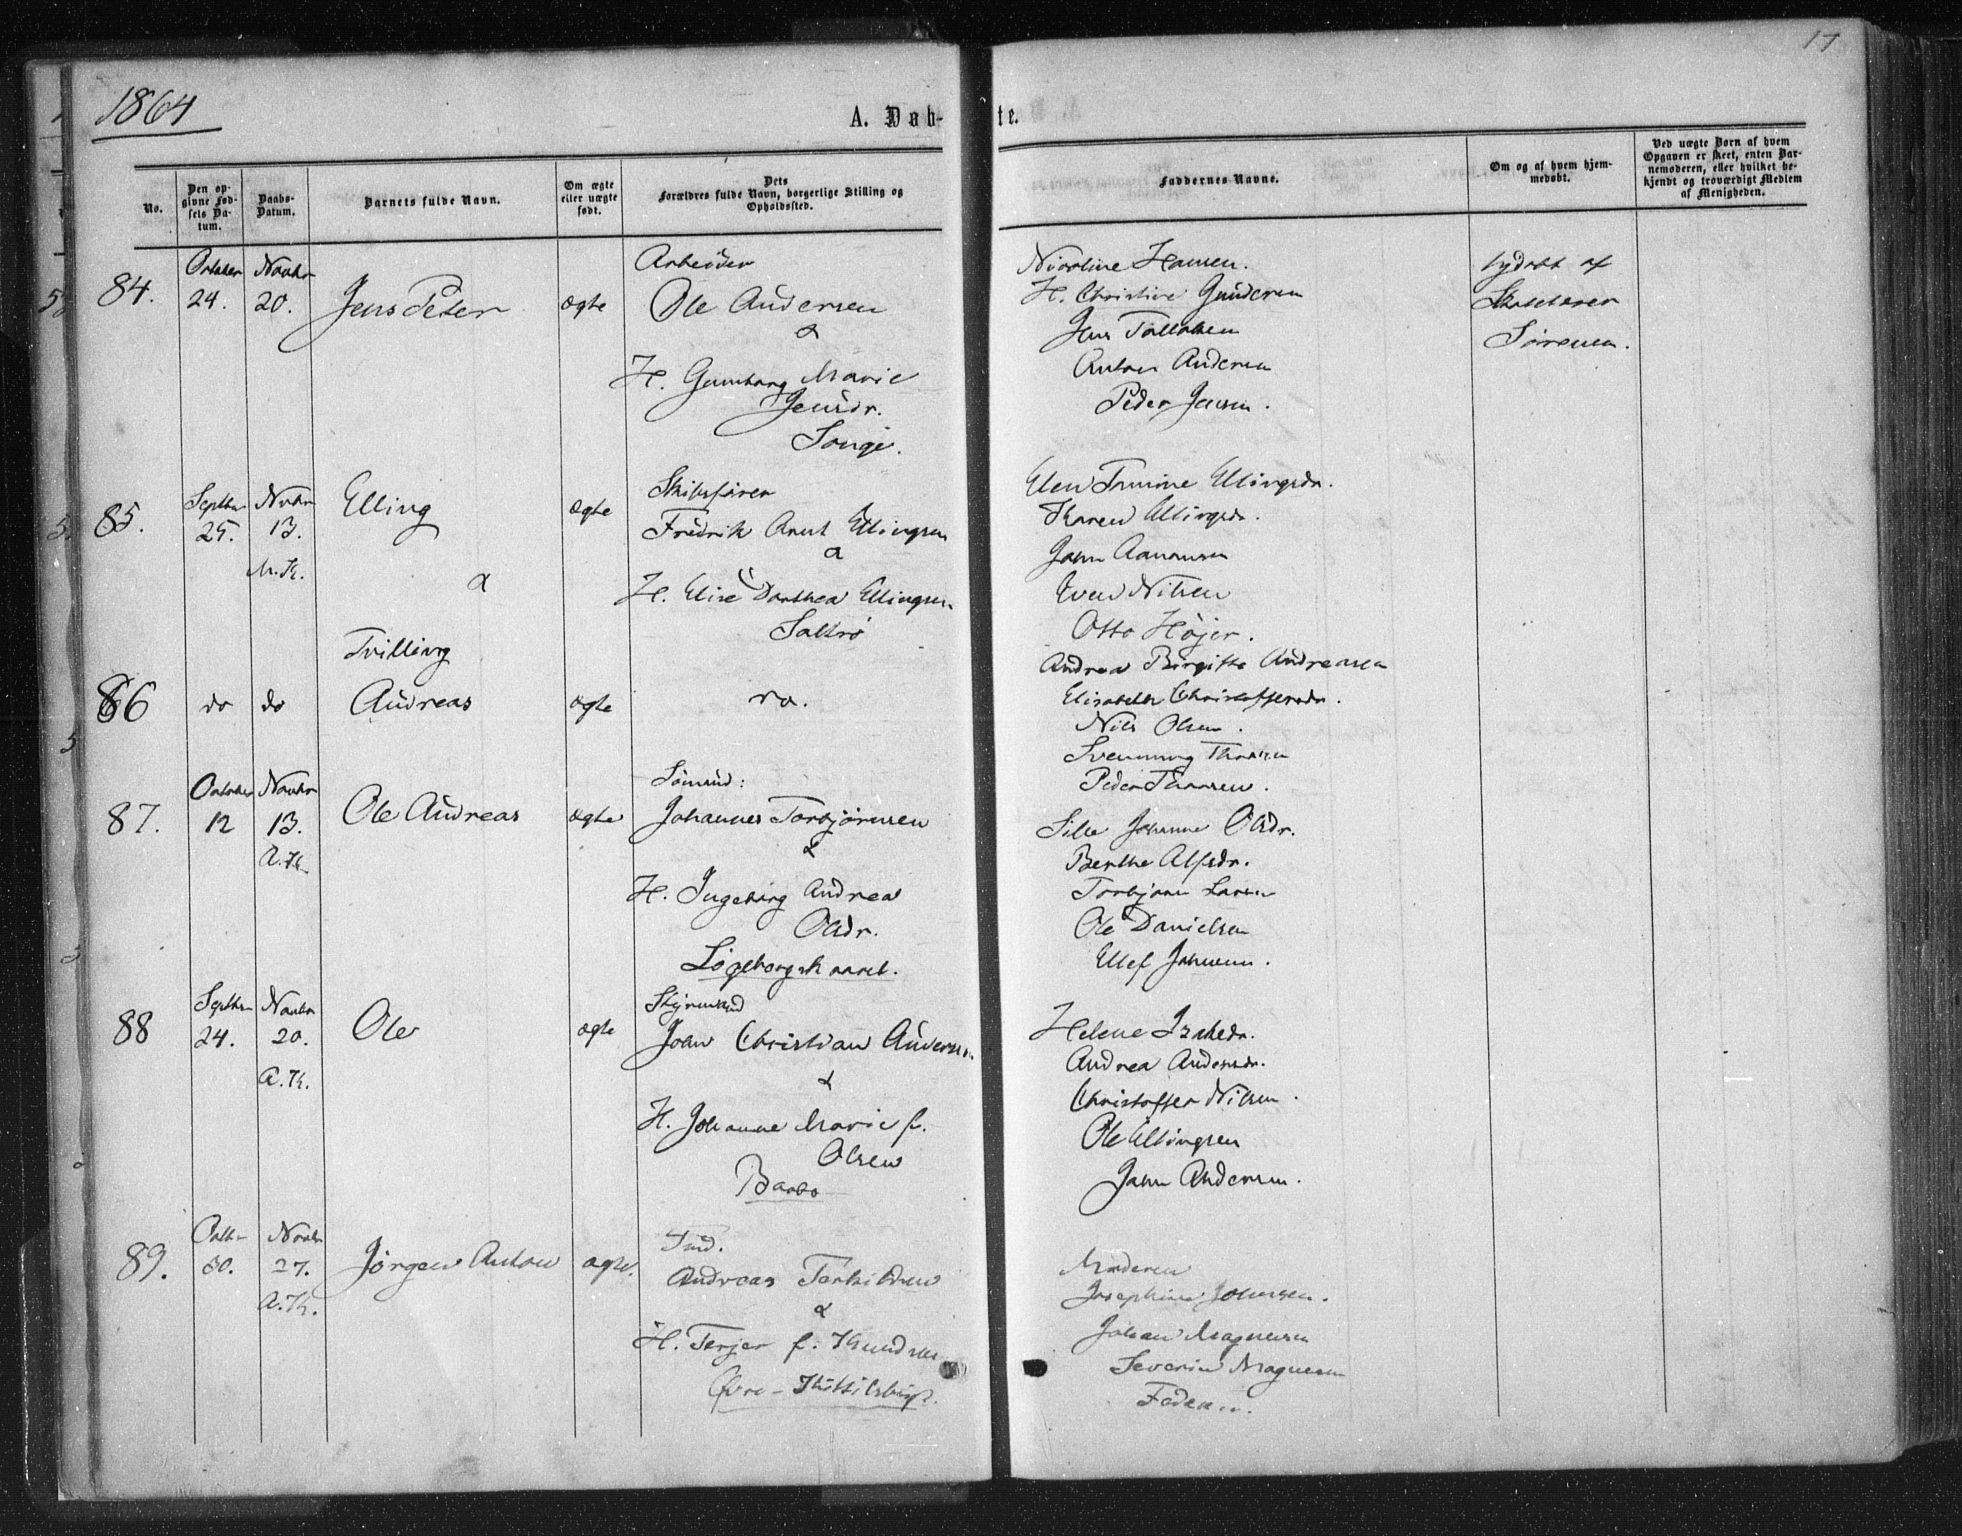 1864
17
A. Døb-
te.
No.
Den op-
givne Fød-
sels Da-
tum.
Daabs-
Datum.
Barnets fulde Navn.
Om ægte
eller uægte
født.
Dets
Forældres fulde Navn, borgerlige Stilling og
Opholdssted.
Faddernes Navne.
Om og af hvem hjem-
medøbt.
Ved uægte Børn af hvem
Opgaven er skeet, enten Bar-
nemoderen, eller hvilket be-
kjendt og troværdigt Medlem
af Menigheden.
84.
October
24.
Novbr
20.
Jens Peter
ægte
Arbeider
Ole Andersen
&
H. Gunborg Marie
Jensdr.
Songe.
Nicoline Hansen.
H. Christine Gundersen
Jens Tallaksen
Anton Andersen
Peder Jensen.
af
Skolelærer
Sørensen.
85.
Septbr
25.
Novbr
13.
M.K.
Elling
&
ægte
Skibsfører
Fredrik Arnt Ellingsen
&
H. Elise Dorthea Ellingsen
Saltrø
Elen Tomine Ellingsdr.
Karen Ellingsdr.
John Aanonsen
Even Nilsen
Otto Højer.
Tvilling
86
do
do
Andreas
ægte
do.
Andrea Birgitte Andreasen
Elisabeth Christoffersdr.
Nils Olsen.
Svenning Thorsen
Peder Thorsen.
87.
October
12
Novbr
13.
A.K.
Ole Andreas
ægte
Sømand:
Johannes Torbjørnsen
&
H. Ingeborg Andrea
Olsdr.
Løgeborgskaaret.
Silse Johanne Olsdr.
Berthe Alfsdr.
Torbjørn Larsen
Ole Danielsen
Ellef Johnsen.
88
Septbr
24.
Novbr
20.
A.K.
Ole
ægte
Styrmand
John Christian Andersen
&
H. Johanne Marie f.
Olsen
Barbo
Helene Isaksdr.
Andrea Andersdr.
Christoffer Nilsen.
Ole Ellingsen
John Andersen.
89.
Octbr
30.
Novbr
27.
A.K.
Jørgen Anton
ægte.
Tmd.
Andreas Terkildsen
&
H. Terjer f. Knudsen
Øvre-
Moderen
Josephine Johnsen.
Johan Magnusen
Severin Magnusen
Faderen.